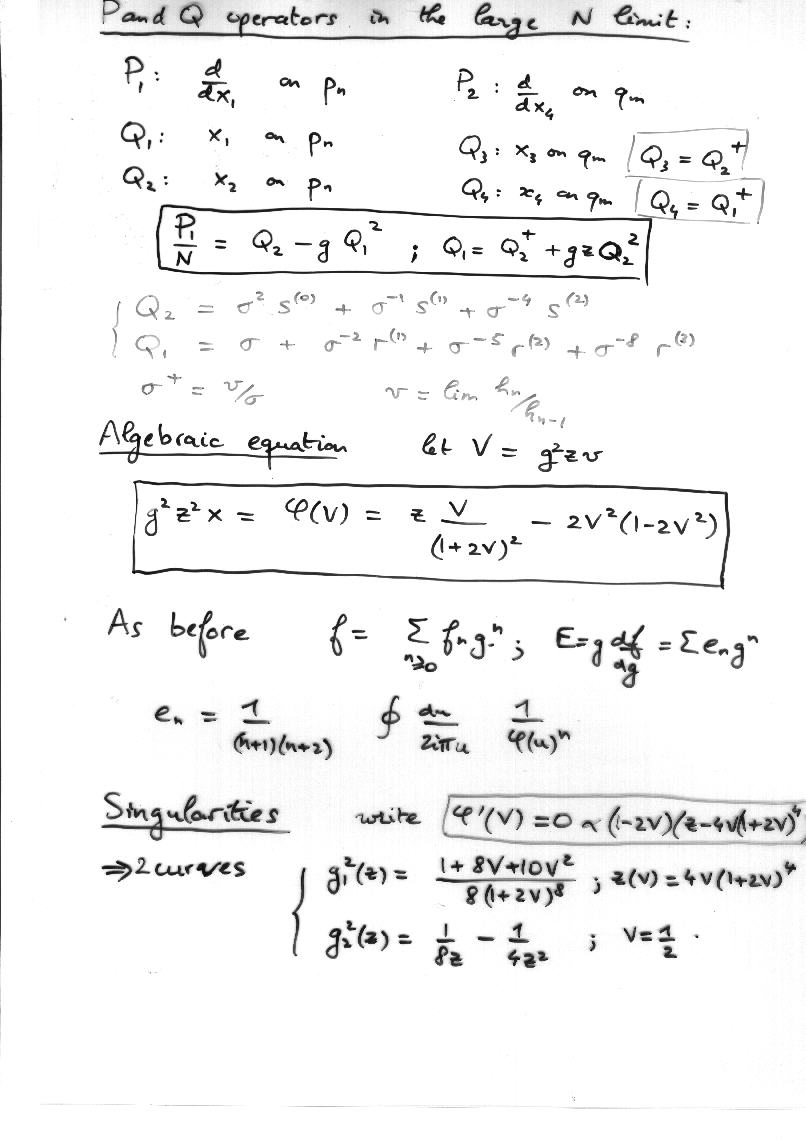 P and Q operators in the large N limit:
P₁: d/dx₁ on pₙ P₂: d/dx₄ on qₘ
Q₁: x₁ on pₙ Q₃: x₃ on qₘ Q₃ = Q₂⁺
Q₂: x₂ on pₙ Q₄: x₄ on qₘ Q₄ = Q₁⁺
P₁/N = Q₂ - g Q₁² ; Q₁ = Q₂⁺ + g z Q₂²
Q₂ = σ² s⁽⁰⁾ + σ⁻¹ s⁽¹⁾ + σ⁻⁴ s⁽²⁾
Q₁ = σ + σ⁻² r⁽¹⁾ + σ⁻⁵ r⁽²⁾ + σ⁻⁸ r⁽³⁾
σ⁺ = v/σ v = lim hₙ/hₙ₋₁
Algebraic equation let V = g²zv
g²z²x = φ(V) = z V/(1+2V)² - 2V²(1-2V²)
As before f = Σ_{n≥0} fₙgⁿ; E=g df/dg = Σeₙgⁿ
eₙ = 1/(n+1)(n+2) ∮ du/2iπu 1/φ(u)ⁿ
Singularities write φ'(V)=0 ∝ (1-2V)(z-4V(1+2V)⁴
⇒ 2 curves g₁²(z) = (1+8V+10V²)/8(1+2V)⁸ ; z(V) = 4V(1+2V)⁴
g₂²(z) = 1/8z - 1/4z² ; V=1/2 .